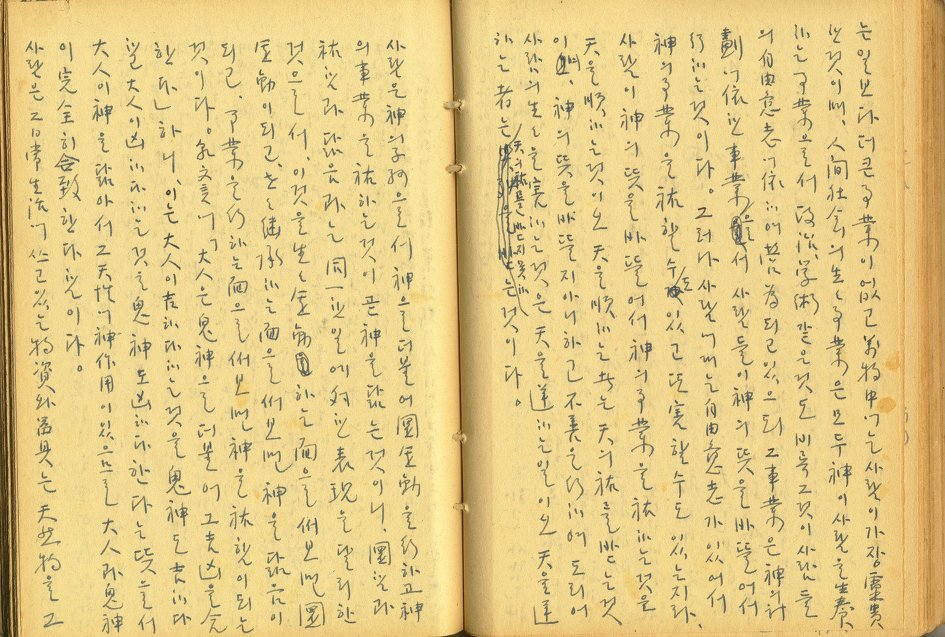 는일보다 더큰事業이없고 萬物中에는사람이가장靈貴
한것이며, 人間社會의生生事業은모두神이사람을生養
하는事業으로서 政治, 学術같은것도 비록그것이사람들
의自由意志에依하여營爲되고있으되 그事業은神의計
劃에依한事業으로서 사람들이神의뜻을바뜰어서
行하는것이다. 그러나 사람에게는自由意志가있어서
神의事業을祐할수도있고 또害할수도 있는지라,
사람이神의뜻을바뜰어서 神의事業을祐하는것은
天을順하는것이오 天을順하는者는天의祐를받는것
이며, 神의뜻을바뜰지아니하고 不善을行하여 도리어
사람의生生을害하는것은 天을逆하는일이오 天을逆
하는者는 天의祐를받지못하는것이다.
사람은神의子孫으로서 神으로더불어圜全動을行하고神
의事業을祐하는것이곧神을닮는것이니, 圜이라
祐이라닮음이라는同一한일에對한表現을달리한
것으로서, 이것을生生全動하는面으로써보면 圜
全動이되고, 繼承하는面으로써보면 神을닮음이
되고, 事業을行하는面으로써보면神을祐함이되는
것이다. 乾文言에「大人은鬼神으로더불어 그吉凶을合
한다」하니, 이는大人이吉하다하는것을鬼神도吉하다
하고大人이凶하다하는것을鬼神도凶하다한다는뜻으로서
大人이神을닮아서그天性에神作用이있으므로大人과鬼神
이完全히合致한다함이다.
사람은그日常生活에쓰고있는物資와器具는天然物을그